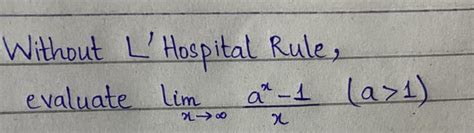 Without L' Hospital Rule,
evaluate lim x→∞ a^x - 1 / x (a>1)